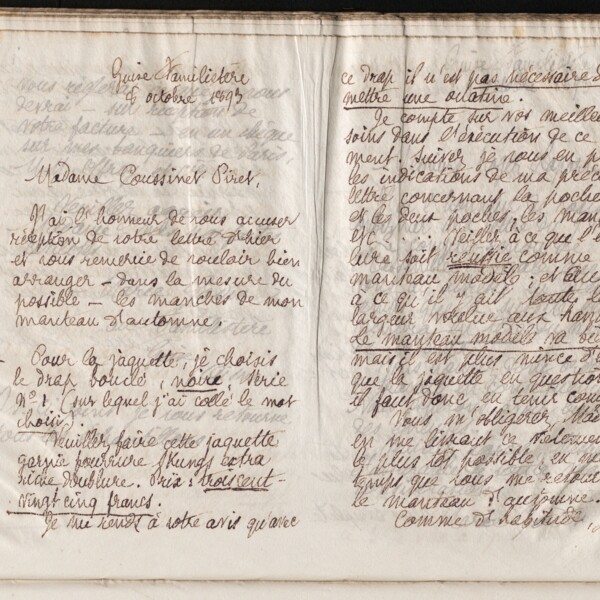 Guise Familistère
8 octobre 1893
Madame Coussinet Piret,
J'ai l'honneur de vous accuser
réception de votre lettre d'hier
et vous remercie de vouloir bien
arranger – dans la mesure du
possible – les manches de mon
manteau d'automne.
Pour la jaquette, je choisis
le drap bouclé, noire, série
N° 1 (sur lequel j'ai collé le mot
choisi).
Veuillez faire cette jaquette
garnie fourrure skungs extra
riche doublure. Prix : trois cent
vingt cinq francs.
Je me rends à votre avis qu'avec
ce drap il n'est pas nécessaire de
mettre une ouatine.
Je compte sur vos meilleurs
soins dans l'exécution de ce
ment. Suivez je vous en p
les indications de ma préc
lettre concernant la poche
et les deux poches, les man
etc... Veillez à ce que l'e
lure soit réussie comme
manteau modèle; et au
à ce qu'il y ait toute l
largeur voulue aux han
Le manteau modèle va
mais il est plus mince d'é
que la jaquette en question
il faut donc en tenir com
Vous m'obligerez, Ma
en me livrant ce vêtement
le plus tôt possible en m
temps que vous me retour
le manteau d'automne.
Comme d'habitude